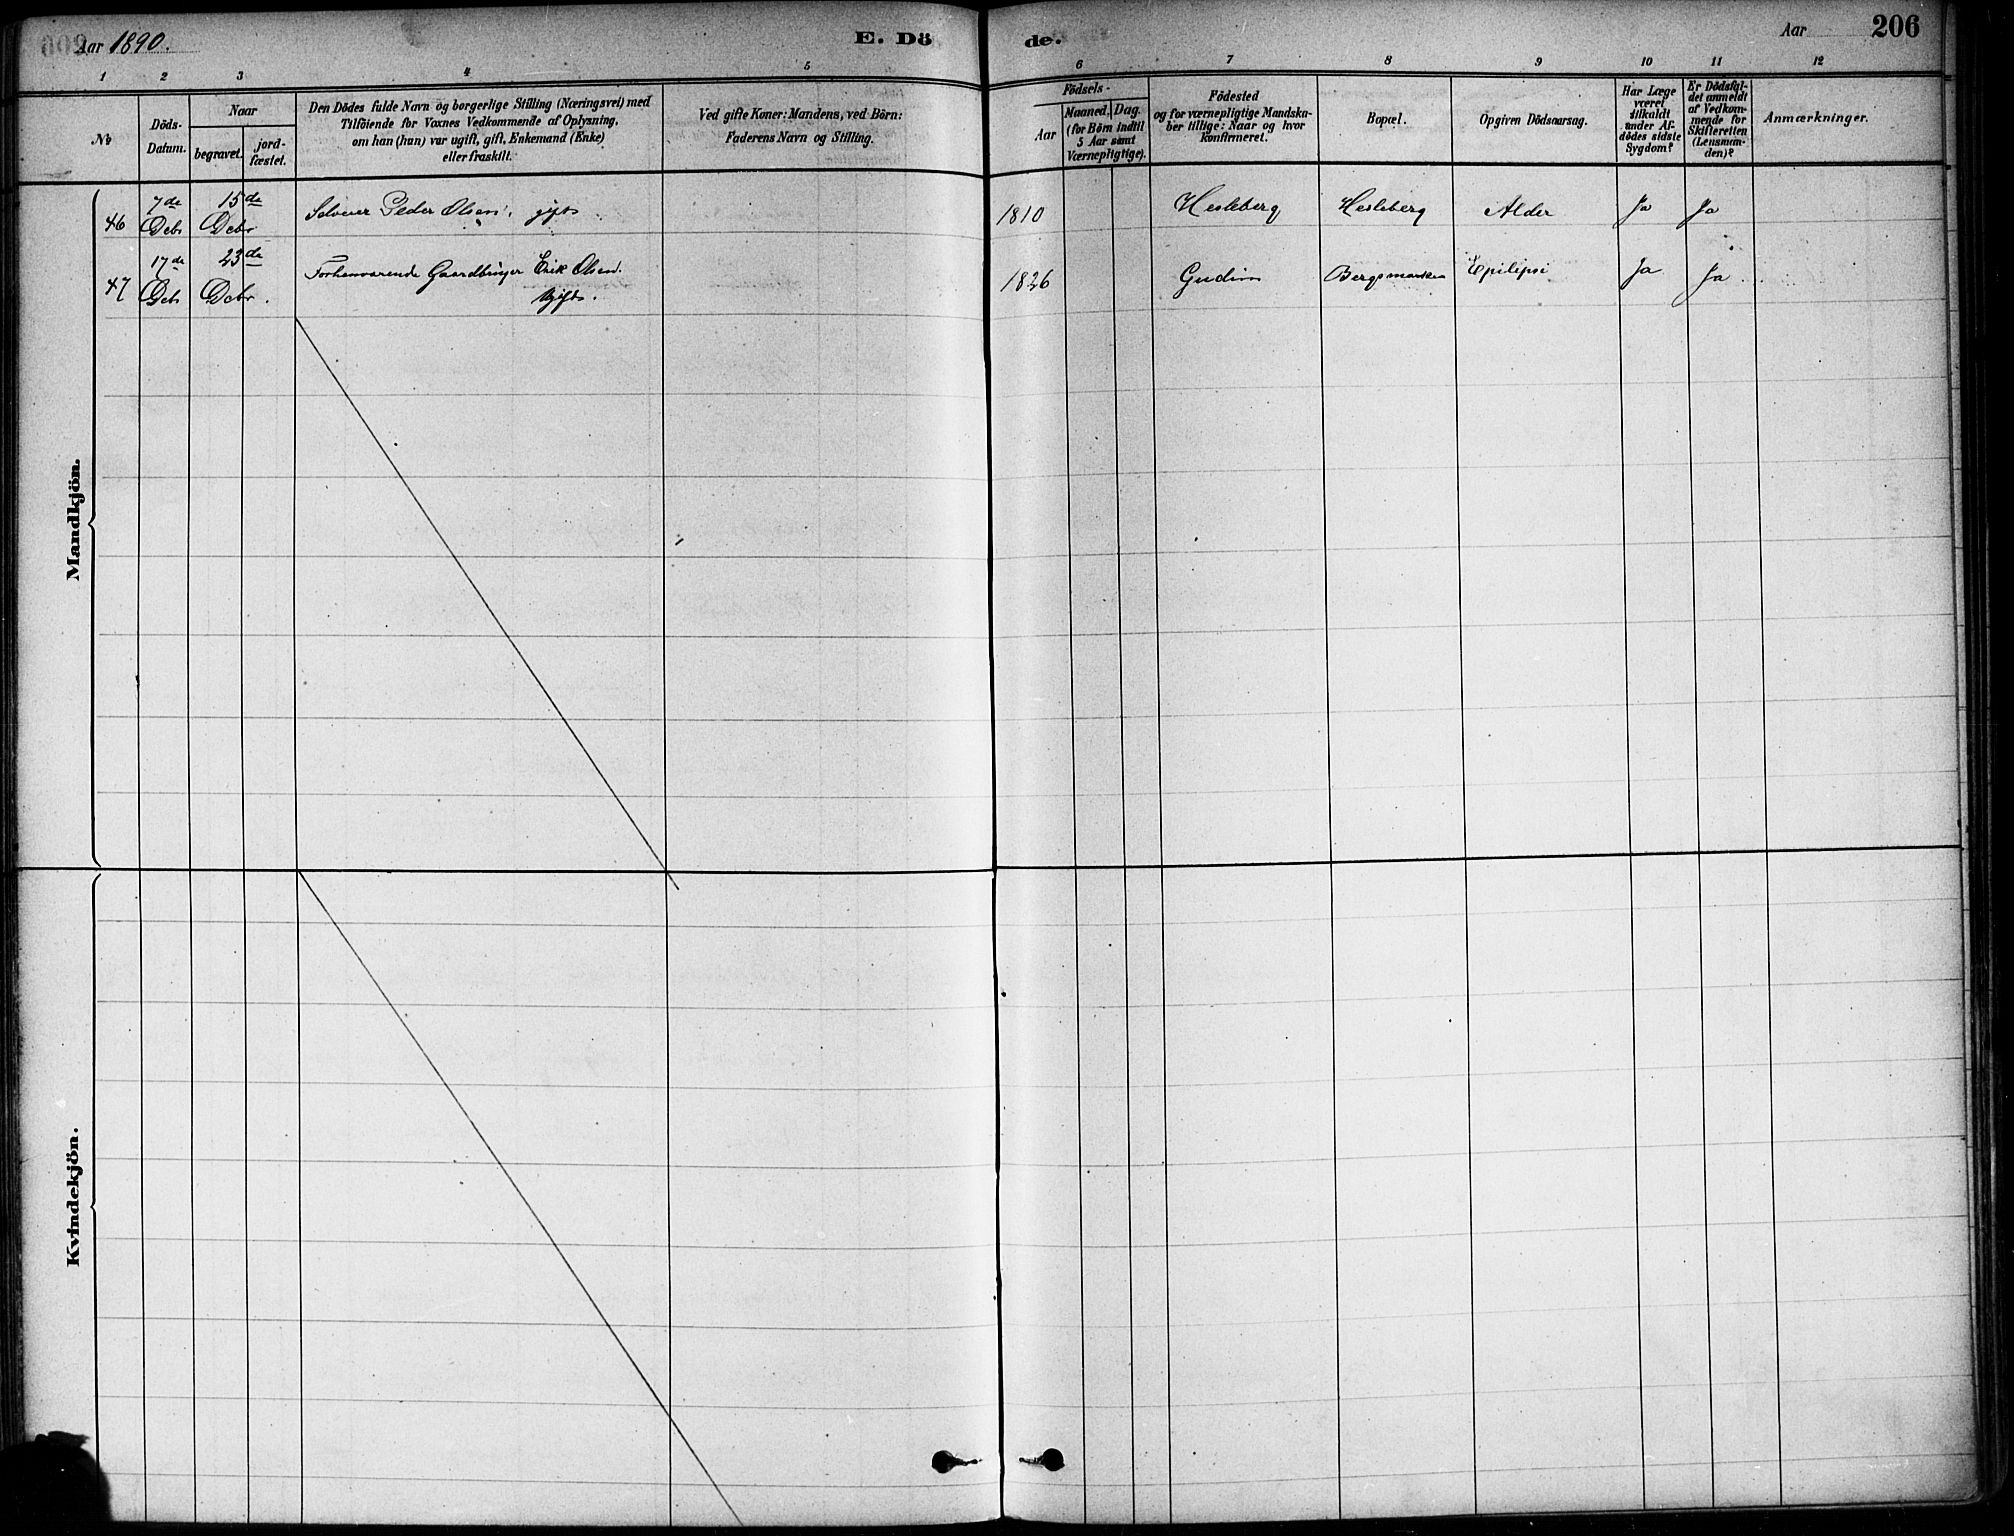 Aar 1890.
E. Döde.
Aar
206
1 2 3 4 5 6 7 8 9 10 11 12
No
Döds-Datum.
Naar
begravet.
jord-fæstet.
Den Dödes fulde Navn og borgerlige Stilling (Næringsvei) med
Tilföiende for Voxnes Vedkommende af Oplysning,
om han (hun) var ugift, gift, Enkemand (Enke)
eller fraskilt.
Ved gifte Koner: Mandens, ved Börn:
Faderens Navn og Stilling.
Födsels-
Aar
Maaned. Dag.
(for Börn indtil
5 Aar samt
Værnepligtige).
Födested
og for værnepligtige Mandska-
ber tillige: Naar og hvor
konfirmeret.
Bopæl.
Opgiven Dödsaarsag.
Har Læge
været
tilkaldt
under Af-
dödes sidste
Sygdom?
Er Dödsfal-
det anmeldt
af Vedkom-
mende for
Skifteretten
(Lensman-
den)?
Anmærkninger.
Mandkjön.
46 7de Debr 15de Debr Selveier Peder Olsen, gift 1810 Hesleberg Hesleberg Alder Ja Ja
47 17de Debr 23de Debr. Forhenværende Gaardbruger Erik Olsen. 1826 Gudim Bergsmarken Epilepsi Ja Ja
Gift.
Kvindekjön.